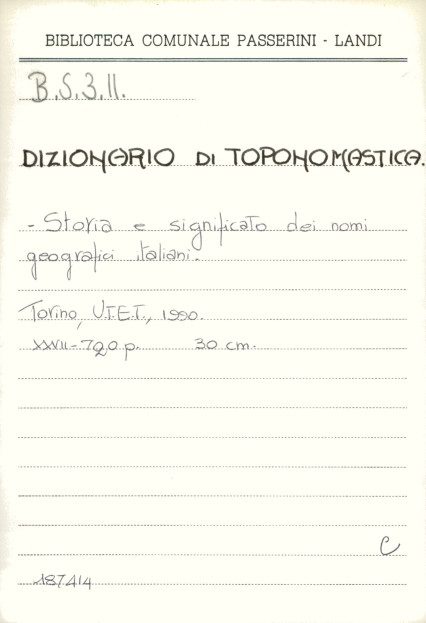 BIBLIOTECA COMUNALE PASSERINI - LANDI
B.S.3.11.
DIZIONARIO DI TOPONOMASTICA.
- Storia e significato dei nomi
geografici italiani.
Torino, U.T.E.T., 1990.
XXVII-720 p. 30 cm.
C
187414